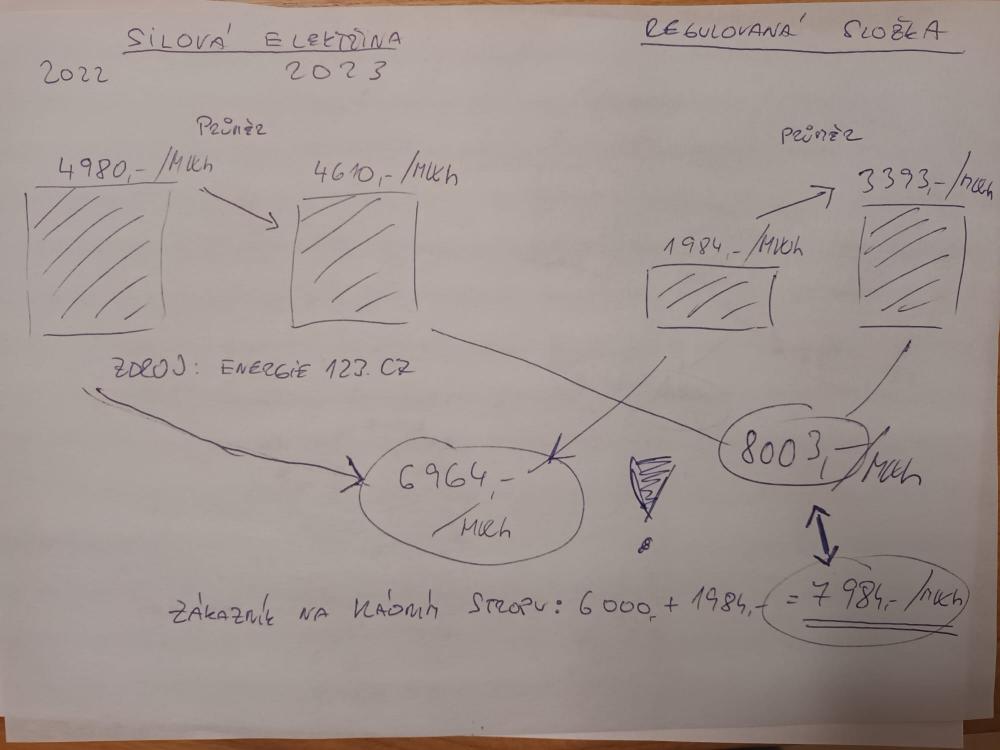 SÍLOVÁ ELEKTŘINA
REGULOVANÁ SLOŽKA
2022 2023
PRŮMĚR
PRŮMĚR
4980,-/MWh
4610,-/MWh
3393,-/MWh
1984,-/MWh
ZDROJ: ENERGIE 123.CZ
8003,-/MWh
6964,-
/MWh
!
ZÁKAZNÍK NA VLÁDNÍM STROPU: 6000,- + 1984,- = 7984,-/MWh